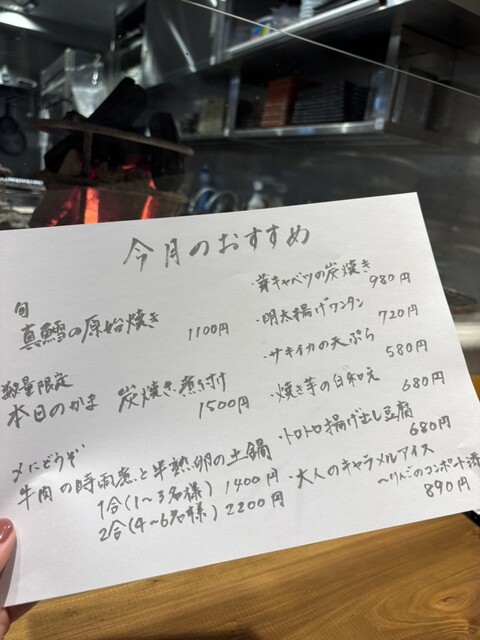 今月のおすすめ
旬
真鱈の原始焼き
1100円
数量限定
本日のかま 炭焼き、煮付け
1500円
〆にどうぞ
牛肉の時雨煮と半熟卵の土鍋
1合(1〜3名様) 1400円
2合(4〜6名様) 2200円
・芽キャベツの炭焼き
980円
・明太揚げワンタン
720円
・サキイカの天ぷら
580円
・焼き芋の白和え
680円
・トロトロ揚げ出し豆腐
680円
・大人のキャラメルアイス
〜りんごのコンポート添
890円